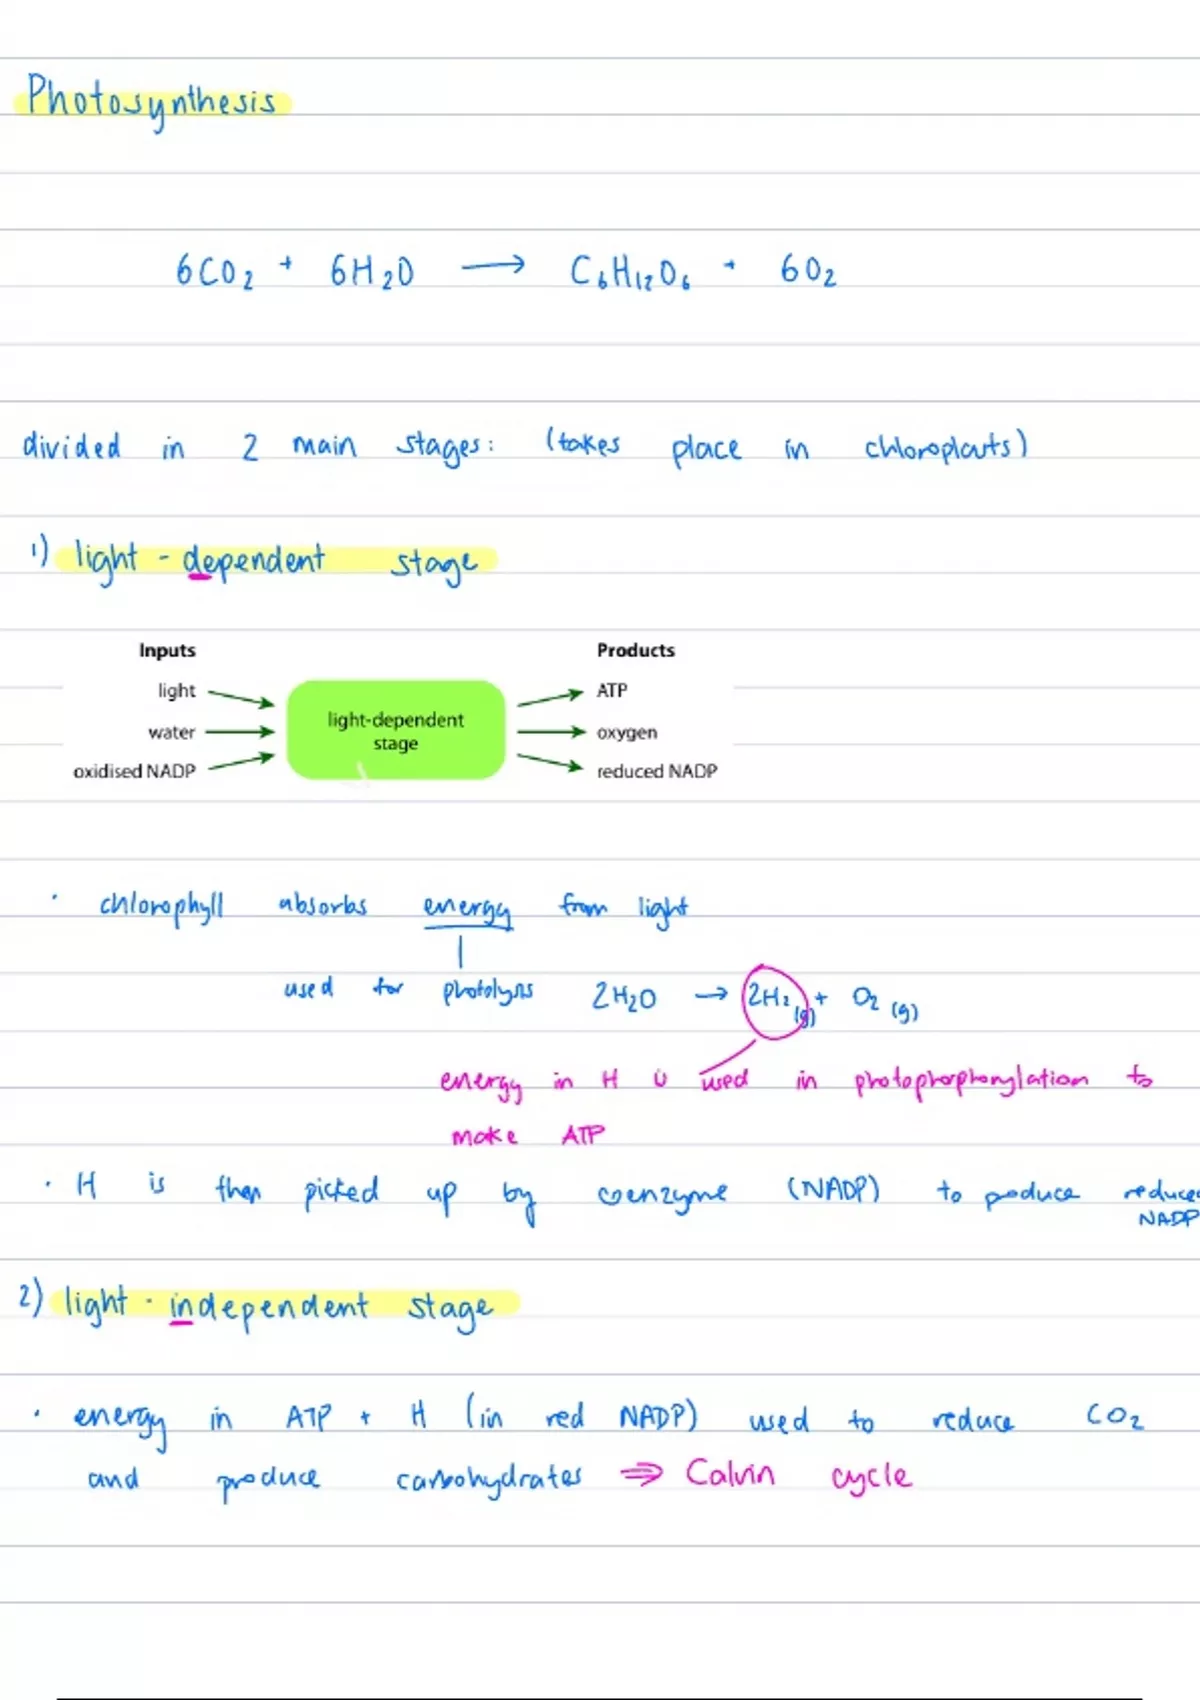 Photosynthesis
6CO₂ + 6H₂O → C₆H₁₂O₆ + 6O₂
divided in 2 main stages: (takes place in chloroplasts)
1) light-dependent stage
Inputs Products
light ATP
light-dependent
water oxygen
stage
oxidised NADP reduced NADP
• chlorophyll absorbs energy from light
used for photolysis 2H₂O → 2H₂(g) + O₂(g)
energy in H is used in photophosphorylation to
make ATP
• H is then picked up by coenzyme (NADP) to produce reduced
NADP
2) light-independent stage
• energy in ATP + H (in red NADP) used to reduce CO₂
and produce carbohydrates ⇒ Calvin cycle